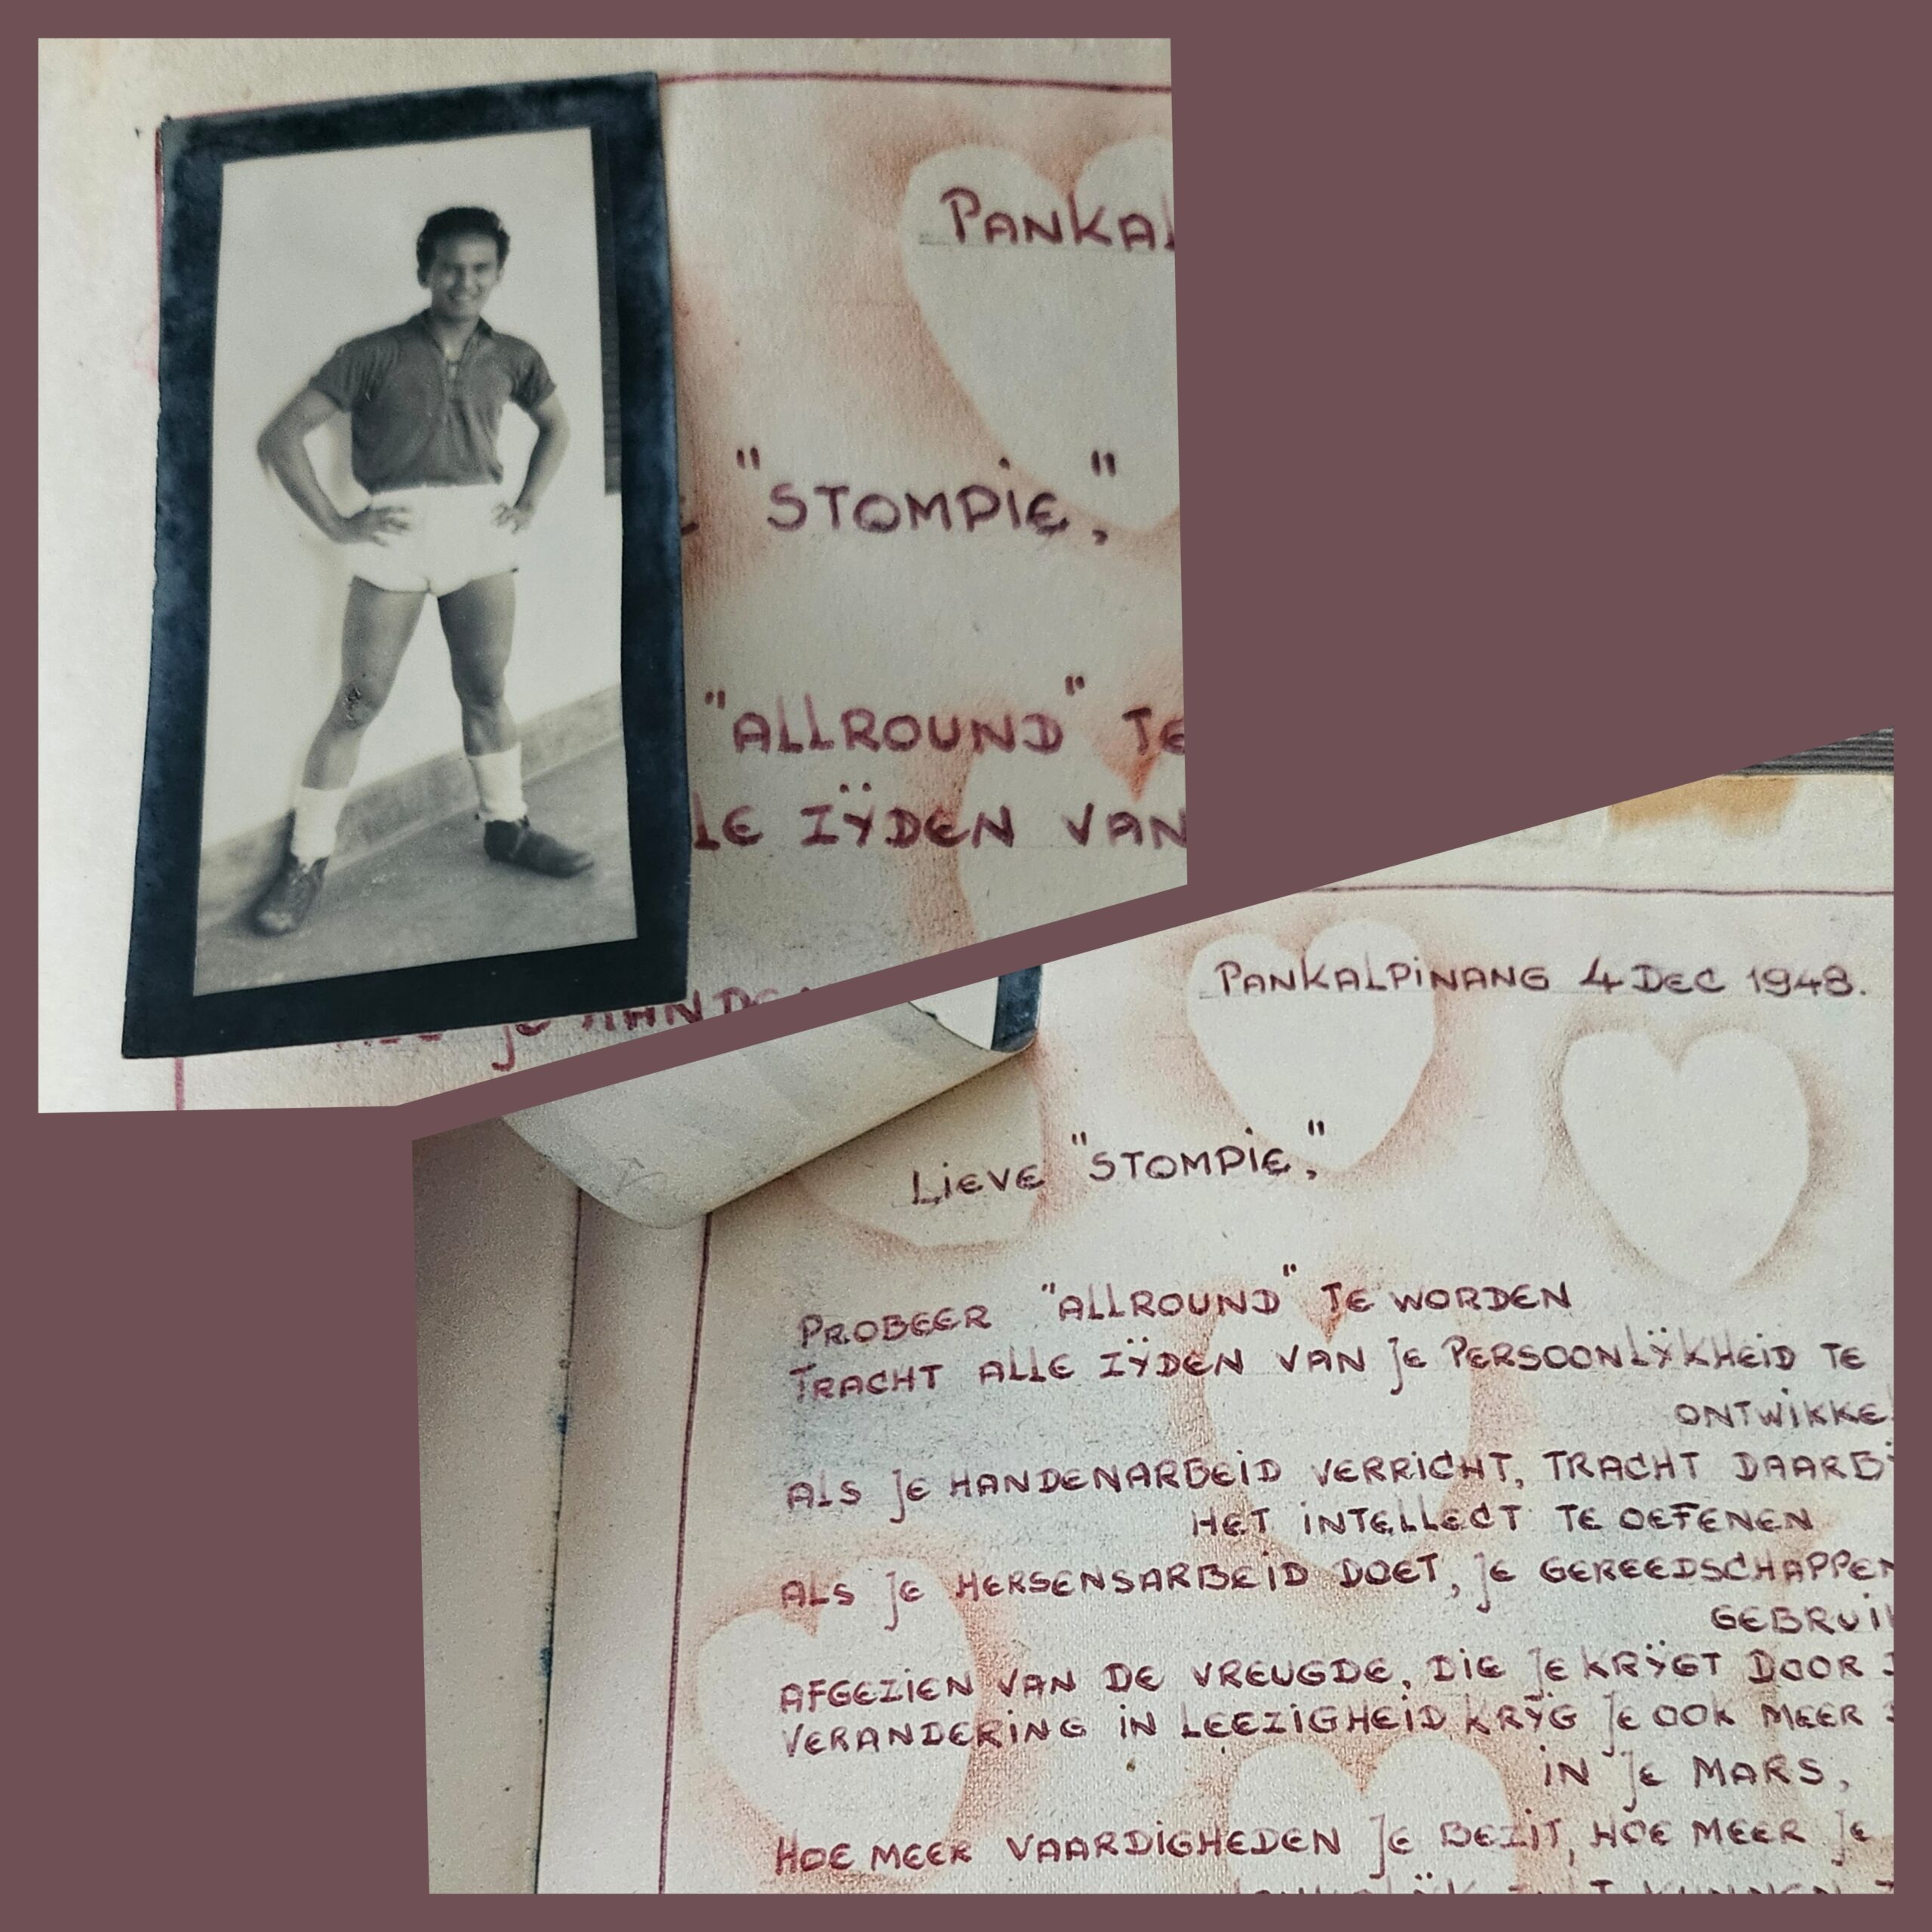 PANKAL
"STOMPIE,"
"ALLROUND" TE
LE ZŸDEN VAN
JE HANDE
PANKALPINANG 4 DEC 1948.
LIEVE "STOMPIE,"
PROBEER "ALLROUND" TE WORDEN
TRACHT ALLE ZŸDEN VAN JE PERSOONLŸKHEID TE
ONTWIKKEL
ALS JE HANDENARBEID VERRICHT, TRACHT DAARB
HET INTELLECT TE OEFENEN
ALS JE HERSENSARBEID DOET, JE GEREEDSCHAPPEN
GEBRUI
AFGEZIEN VAN DE VREUGDE, DIE JE KRŸGT DOOR
VERANDERING IN LEEZIGHEID KRŸG JE OOK MEER
IN JE MARS,
HOE MEER VAARDIGHEDEN JE BEZIT, HOE MEER JE